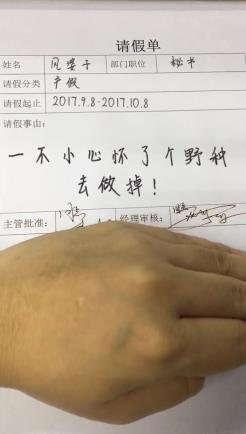 请假单
姓名 风婆子 部门职位 秘书
请假分类 产假
请假起止 2017.9.8-2017.10.8
请假事由：
一不小心怀了个野种
去做掉！
主管批准： 经理审核：